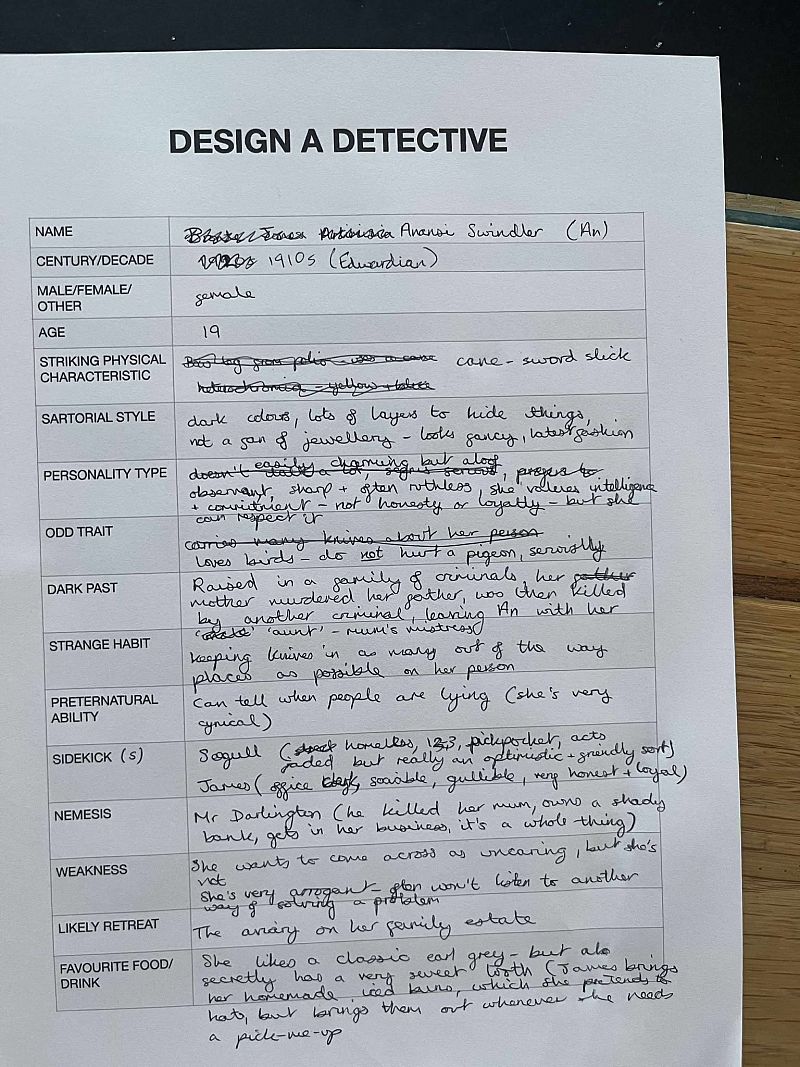 DESIGN A DETECTIVE
NAME Anansi Swindler (An)
CENTURY/DECADE 1910s (Edwardian)
MALE/FEMALE/
OTHER female
AGE 19
STRIKING PHYSICAL cane - sword stick
CHARACTERISTIC heterochromia - yellow +
SARTORIAL STYLE dark colours, lots of layers to hide things,
not a fan of jewellery - looks fancy, latest fashion
easily charming but aloof
PERSONALITY TYPE doesn't talk a lot, serious, prefers to
observant, sharp + often ruthless, she values intelligence
+ commitment - not honesty or loyalty - but she
can respect it
ODD TRAIT carries many knives about her person
loves birds - do not hurt a pigeon, seriously
DARK PAST Raised in a family of criminals, her father
mother murdered her father, was then killed
by another criminal, leaving An with her
'aunt' - mum's mistress
STRANGE HABIT keeping knives in as many out of the way
places as possible on her person
PRETERNATURAL Can tell when people are lying (she's very
ABILITY cynical)
SIDEKICK (s) Seagull ( homeless, 123, pickpocket, acts
jaded but really an optimistic + friendly sort)
James (office clerk, sociable, gullible, very honest + loyal)
NEMESIS Mr Darlington (he killed her mum, owns a shady
bank, gets in her business, it's a whole thing)
WEAKNESS She wants to come across as uncaring, but she's
not
She's very arrogant - often won't listen to another
way of solving a problem
LIKELY RETREAT The aviary on her family estate
FAVOURITE FOOD/ She likes a classic earl grey - but also
DRINK secretly has a very sweet tooth (James brings
her homemade iced buns, which she pretends to
hate, but brings them out whenever she needs
a pick-me-up